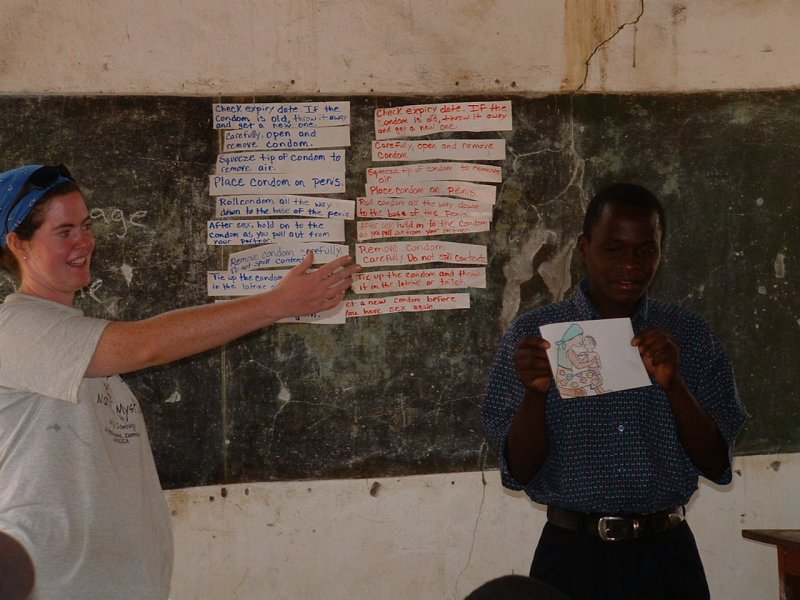 Check expiry date. If the
condom is old, throw it away
and get a new one.
Carefully, open and
remove condom.
Squeeze tip of condom to
remove air.
Place condom on penis.
Roll condom all the way
down to the base of the penis
After sex, hold on to the
condom as you pull out from
your partner
Remove condom carefully
Do not spill contents
Tie up the condom
in the latrine or
again.
Check expiry date. If the
condom is old, throw it away
and get a new one.
Carefully, open and remove
condom.
Squeeze tip of condom to remove
air.
Place condom on penis.
Roll condom all the way down
to the base of the penis.
After sex hold on to the condom
as you pull out from your partner
Remove condom
Carefully Do not spill contents
Tie up the condom and throw
it in the latrine or toilet.
et a new condom before
you have sex again.
AFRICA